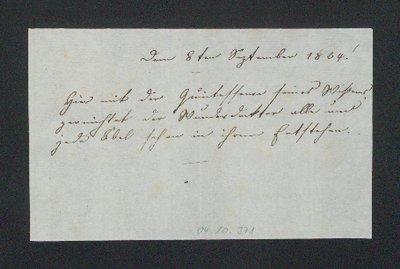 Dem 8ten September 1864!
Hier mit der Quintessenz seines Wissens,
zernichtet der Wunderdokter alle und
jede Übel schon in ihrem Entstehen.
04.10.371